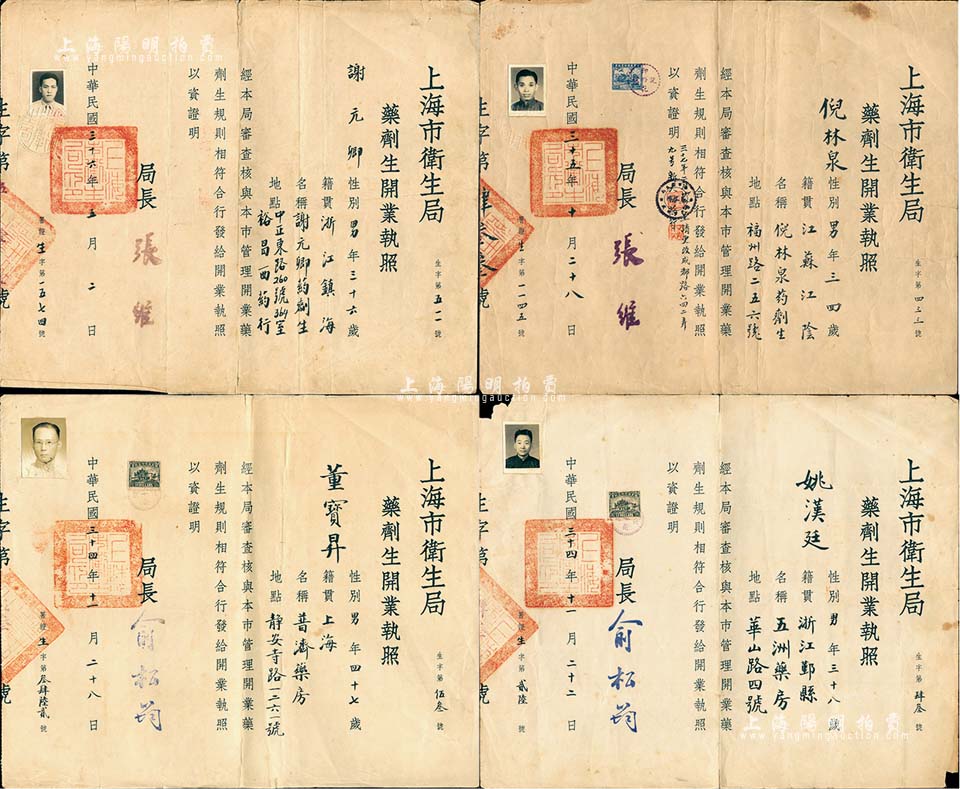 上海陽明拍賣
www.yangmingauction.com
上海市衛生局
藥劑生開業執照
生字第五一一號
謝元卿
性別男年三十六歲
籍貫浙江鎮海
名稱謝元卿葯劑生
地點中正東路260號364室
裕昌西葯行
經本局審查核與本市管理開業藥
劑生規則相符合行發給開業執照
以資證明
局長張維
中華民國三十六年五月二日
署證生字第一五七四號
上海陽明拍賣
www.yangmingauction.com
上海市衛生局
藥劑生開業執照
生字第四三三號
倪林泉
性別男年三四歲
籍貫江蘇江陰
名稱倪林泉葯劑生
地點福州路二五六號
經本局審查核與本市管理開業藥
劑生規則相符合行發給開業執照
以資證明
局長張維
中華民國三十五年十月二十八日
署證生字第一一四五號
上海陽明拍賣
www.yangmingauction.com
上海市衛生局
藥劑生開業執照
生字第伍叁號
董寶昇
性別男年四十七歲
籍貫上海
名稱普濟藥房
地點靜安寺路一三六一號
經本局審查核與本市管理開業藥
劑生規則相符合行發給開業執照
以資證明
局長俞松筠
中華民國三十四年十一月二十八日
署證生字第叁肆陸貳號
上海市衛生局
藥劑生開業執照
生字第肆叁號
姚漢廷
性別男年三十八歲
籍貫浙江鄞縣
名稱五洲藥房
地點華山路四號
經本局審查核與本市管理開業藥
劑生規則相符合行發給開業執照
以資證明
局長俞松筠
中華民國三十四年十一月二十二日
署證生字第貳陸號
上海陽明拍賣
www.yangmingauction.com